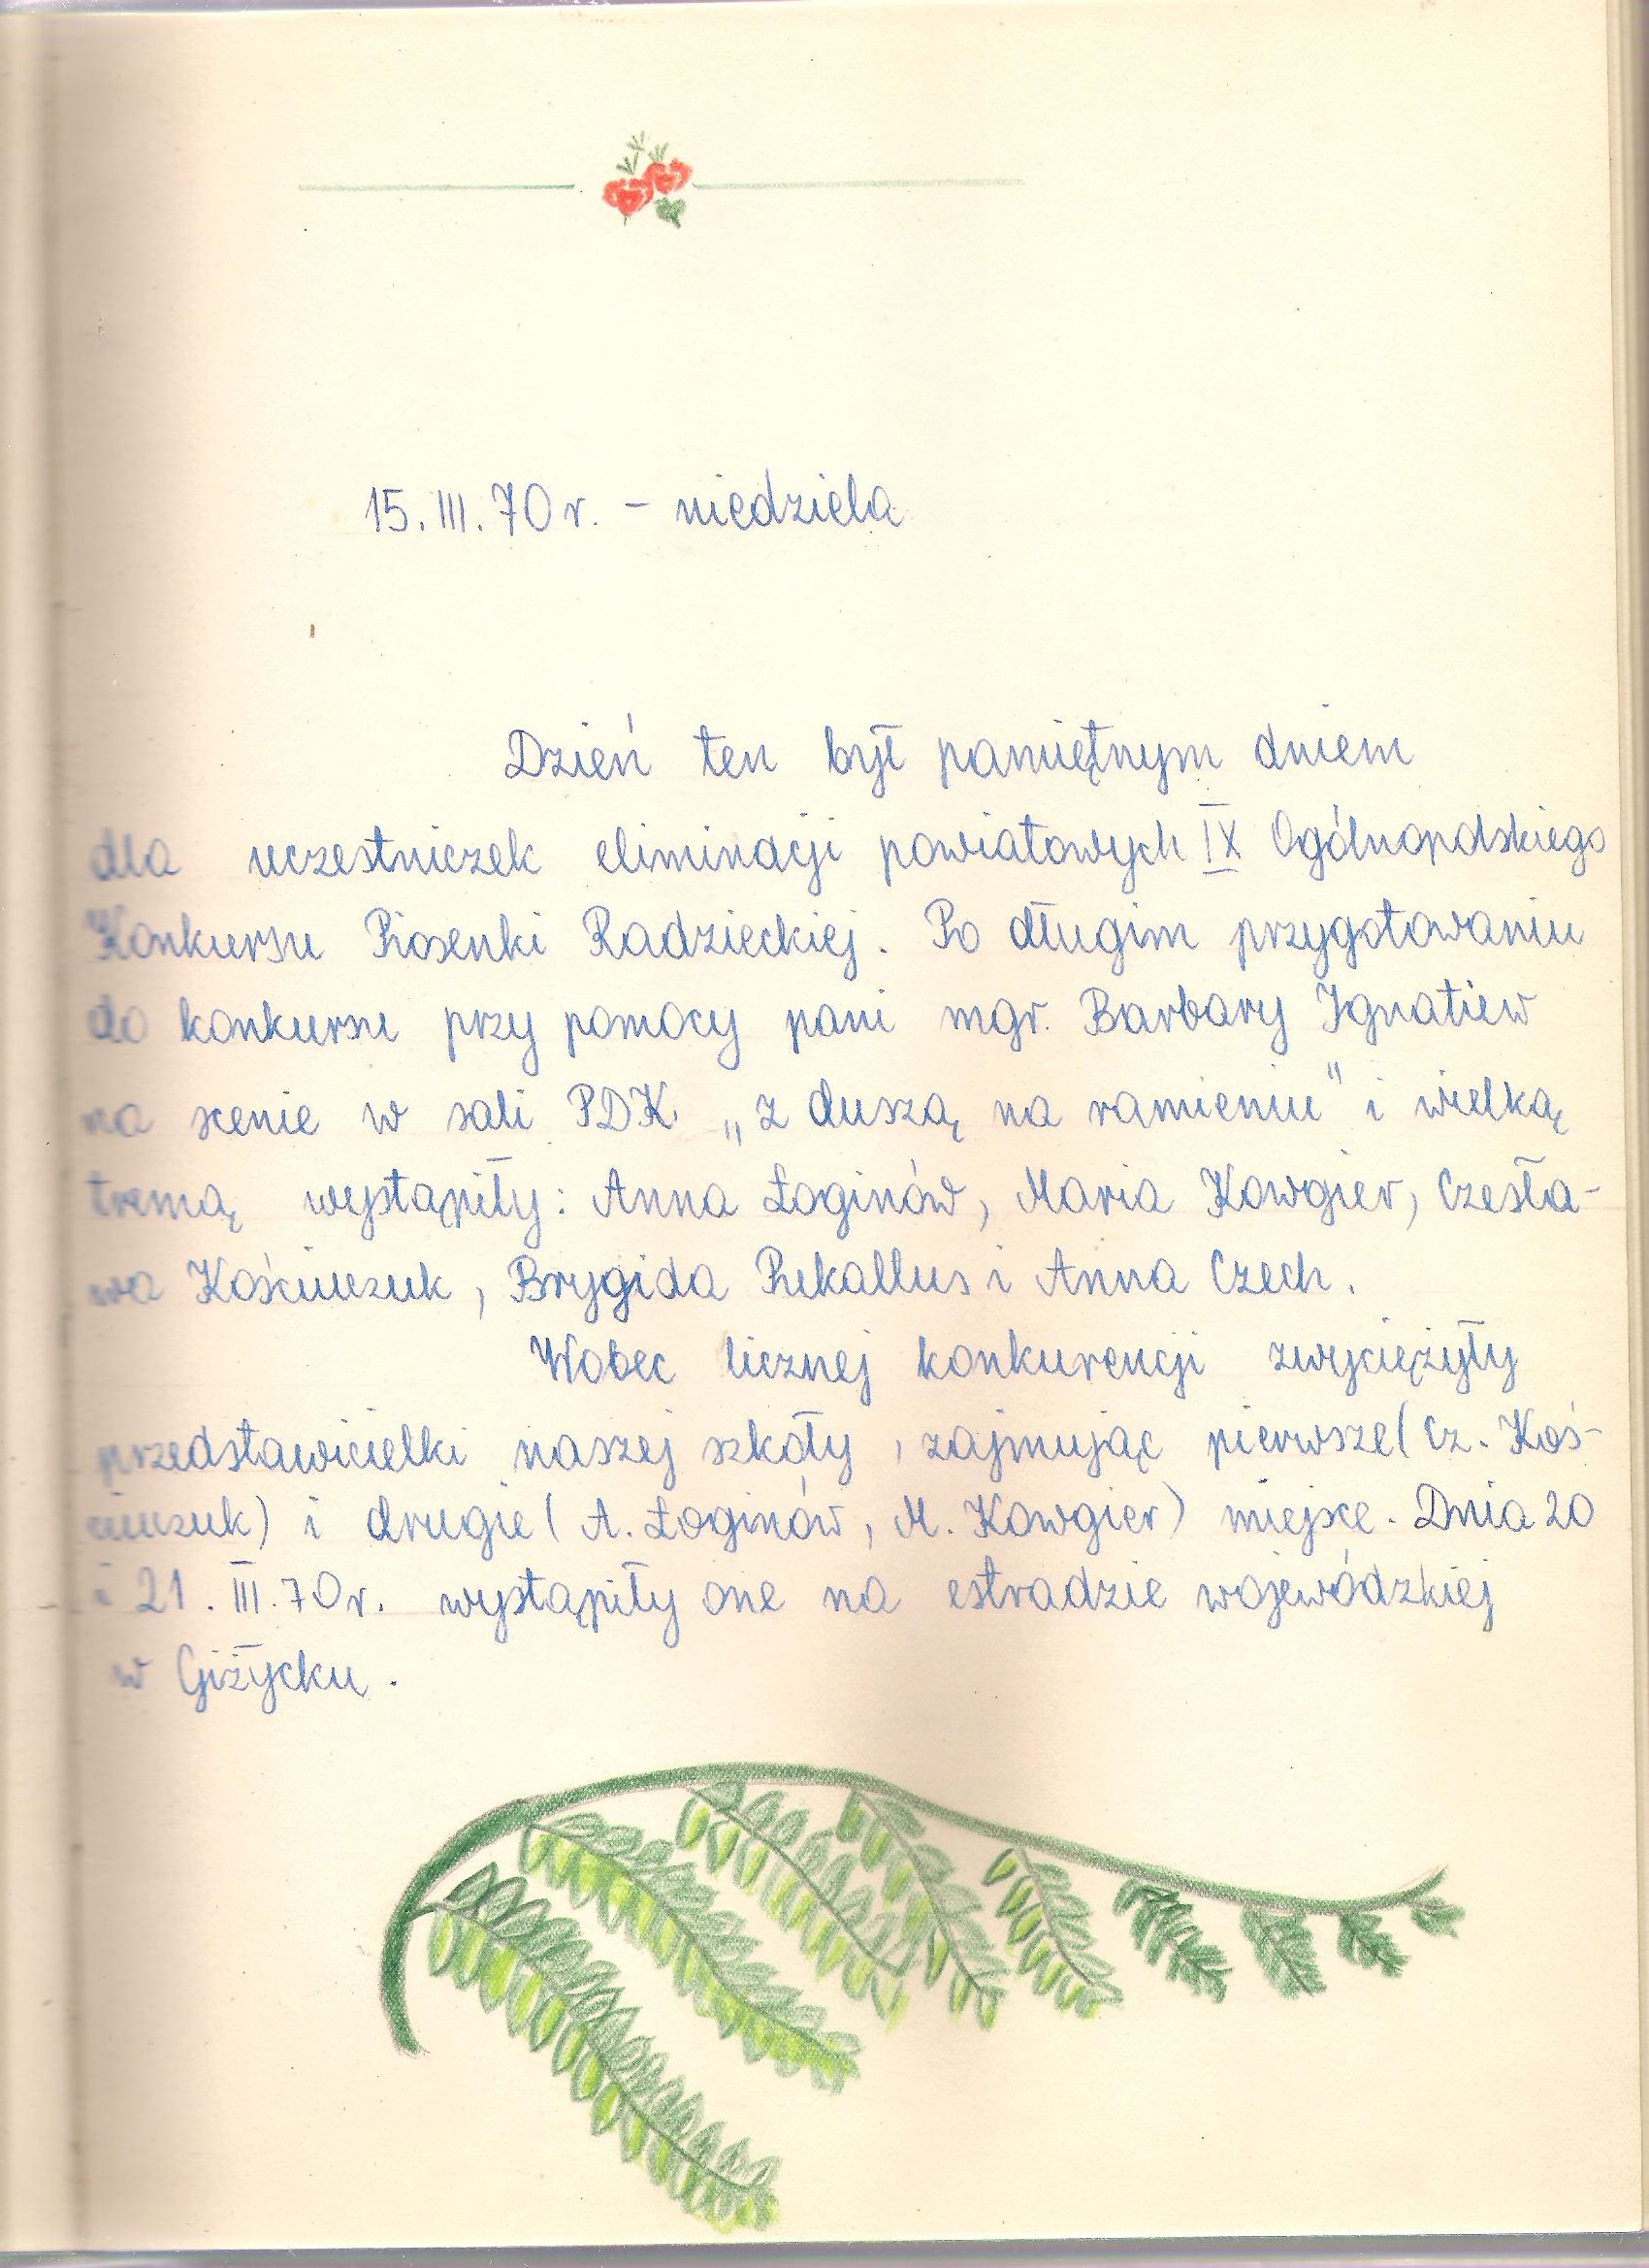 15. III. 70 r. – niedziela
Dzień ten był pamiętnym dniem
dla uczestniczek eliminacji powiatowych IX Ogólnopolskiego
Konkursu Piosenki Radzieckiej. Po długim przygotowaniu
do konkursu przy pomocy pani mgr. Barbary Ignatiew
na scenie w sali PDK. „z duszą na ramieniu" i wielką
tremą wystąpiły: Anna Łoginów, Maria Kowgier, Czesła-
wa Kościuczuk, Brygida Pukallus i Anna Czech.
Wobec licznej konkurencji zwyciężyły
przedstawicielki naszej szkoły, zajmując pierwsze (Cz. Koś-
ciuczuk) i drugie (A. Łoginów, M. Kowgier) miejsce. Dnia 20
i 21. III. 70 r. wystąpiły one na estradzie wojewódzkiej
w Giżycku.